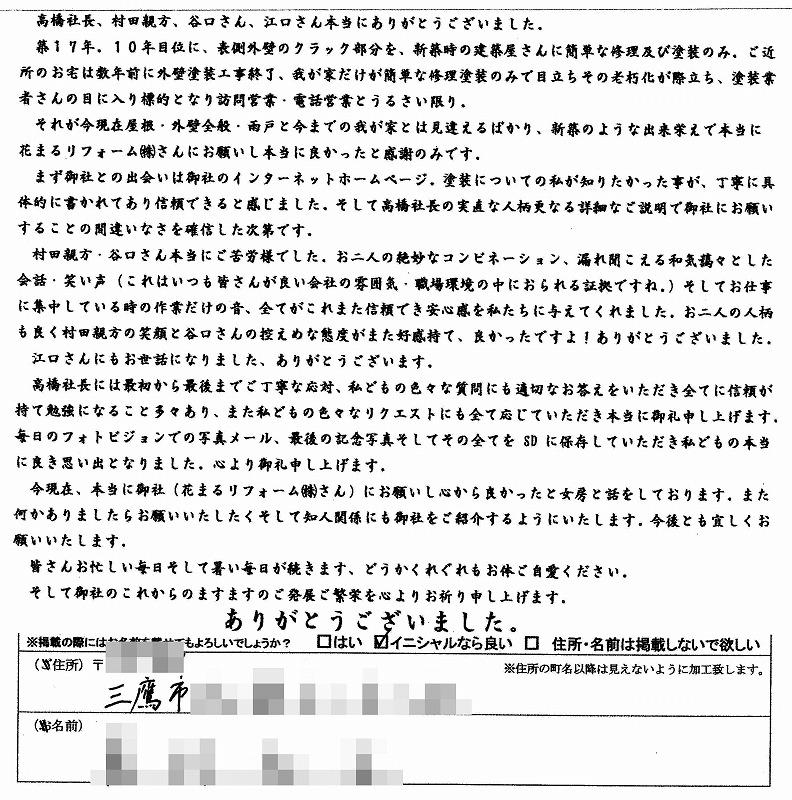 高橋社長、村田親方、谷口さん、江口さん本当にありがとうございました。
築17年。10年目位に、表側外壁のクラック部分を、新築時の建築屋さんに簡単な修理及び塗装のみ。ご近
所のお宅は数年前に外壁塗装工事終了、我が家だけが簡単な修理塗装のみで目立ちその老朽化が際立ち、塗装業
者さんの目に入り標的となり訪問営業・電話営業とうるさい限り。
それが今現在屋根・外壁全般・雨戸と今までの我が家とは見違えるばかり、新築のような出来栄えで本当に
花まるリフォーム㈱さんにお願いし本当に良かったと感謝のみです。
まず御社との出会いは御社のインターネットホームページ。塗装についての私が知りたかった事が、丁寧に具
体的に書かれてあり信頼できると感じました。そして高橋社長の実直な人柄更なる詳細なご説明で御社にお願い
することの間違いなさを確信した次第です。
村田親方・谷口さん本当にご苦労様でした。お二人の絶妙なコンビネーション、漏れ聞こえる和気藹々とした
会話・笑い声（これはいつも皆さんが良い会社の雰囲気・職場環境の中におられる証拠ですね。）そしてお仕事
に集中している時の作業だけの音、全てがこれまた信頼でき安心感を私たちに与えてくれました。お二人の人柄
も良く村田親方の笑顔と谷口さんの控えめな態度がまた好感持て、良かったですよ！ありがとうございました。
江口さんにもお世話になりました、ありがとうございます。
高橋社長には最初から最後までご丁寧な応対、私どもの色々な質問にも適切なお答えをいただき全てに信頼が
持て勉強になること多々あり、また私どもの色々なリクエストにも全て応じていただき本当に御礼申し上げます。
毎日のフォトビジョンでの写真メール、最後の記念写真そしてその全てを SD に保存していただき私どもの本当
に良き思い出となりました。心より御礼申し上げます。
今現在、本当に御社（花まるリフォーム㈱さん）にお願いし心から良かったと女房と話をしております。また
何かありましたらお願いいたしたくそして知人関係にも御社をご紹介するようにいたします。今後とも宜しくお
願いいたします。
皆さんお忙しい毎日そして暑い毎日が続きます、どうかくれぐれもお体ご自愛ください。
そして御社のこれからのますますのご発展ご繁栄を心よりお祈り申し上げます。
ありがとうございました。
※掲載の際にはお名前を載せてもよろしいでしょうか？ □はい ☑イニシャルなら良い □ 住所・名前は掲載しないで欲しい
（住所）〒 ※住所の町名以降は見えないように加工致します。
三鷹市
（お名前）